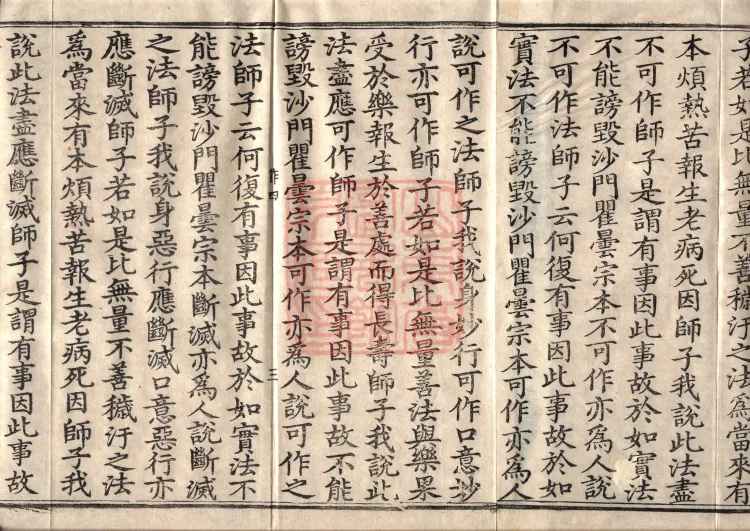 子若如是比無量不善穢汙之法爲當來有
本煩熱苦報生老病死因師子我說此法盡
不可作師子是謂有事因此事故於如實法
不能謗毀沙門瞿曇宗本不可作亦爲人說
不可作法師子云何復有事因此事故於如
實法不能謗毀沙門瞿曇宗本可作亦爲人
說可作之法師子我說身妙行可作口意妙
行亦可作師子若如是比無量善法與樂果
受於樂報生於善處而得長壽師子我說此
法盡應可作師子是謂有事因此事故不能
謗毀沙門瞿曇宗本可作亦爲人說可作之
作四 三
法師子云何復有事因此事故於如實法不
能謗毀沙門瞿曇宗本斷滅亦爲人說斷滅
之法師子我說身惡行應斷滅口意惡行亦
應斷滅師子若如是比無量不善穢汙之法
爲當來有本煩熱苦報生老病死因師子我
說此法盡應斷滅師子是謂有事因此事故